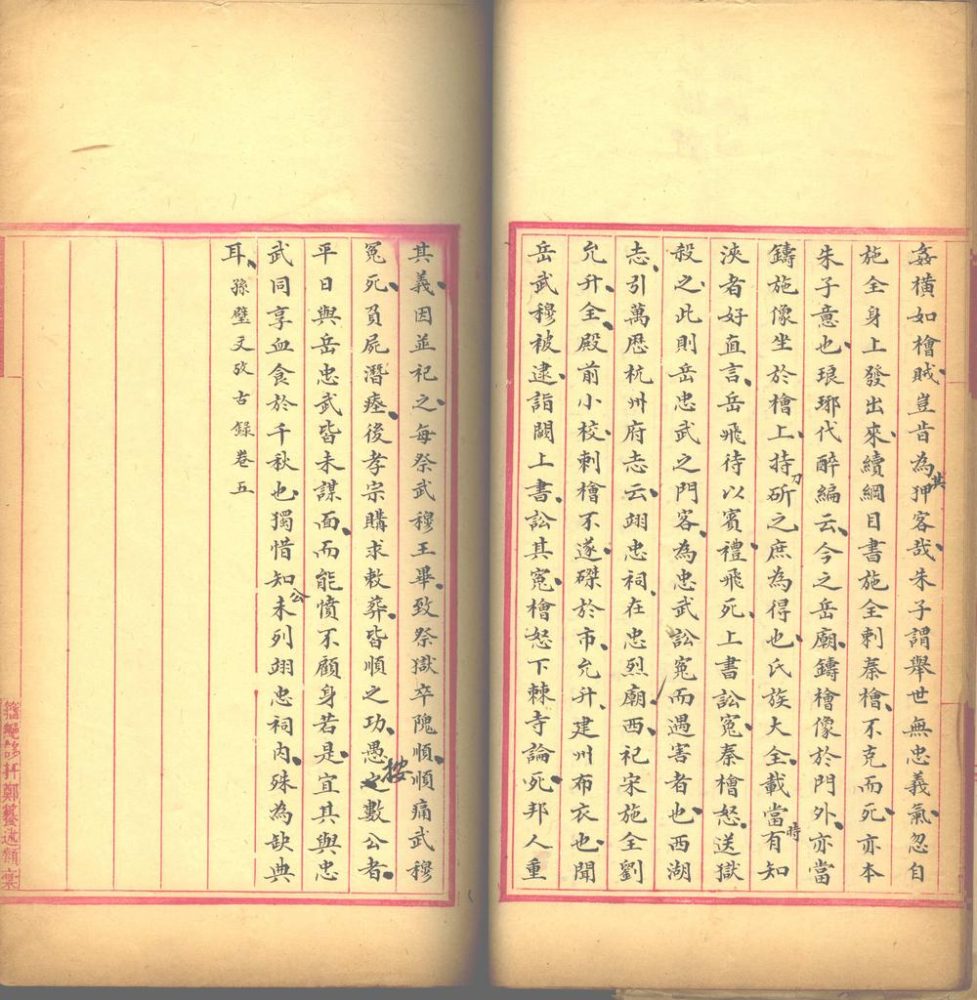 姦橫如檜賊豈昔為狎客哉其朱子謂舉世無忠義氣忽自
施全身上發出來續綱目書施全刺秦檜不克而死亦本
朱子意也琅琊代醉編云今之岳廟鑄檜像於門外亦當
鑄施像坐於檜上持刀斫之庶為得也氏族大全載當時有知
浹者好直言岳飛待以賓禮飛死上書訟冤秦檜怒送獄
殺之此則岳忠武之門客為忠武訟冤而遇害者也西湖
志引萬歷杭州府志云翊忠祠在忠烈廟西祀宋施全劉
允升全殿前小校刺檜不遂磔於市允升建州布衣也聞
岳武穆被逮詣闕上書訟其冤檜怒下棘寺論死邦人重
其義因並祀之每祭武穆王畢致祭獄卒隗順順痛武穆
冤死負屍潛瘞後孝宗購求敕葬皆順之功愚按之數公者
平日與岳忠武皆未謀面而能憤不顧身若是宜其與忠
武同享血食於千秋也獨惜知公未列翊忠祠內殊為缺典
耳 孫璧文攷古錄卷五